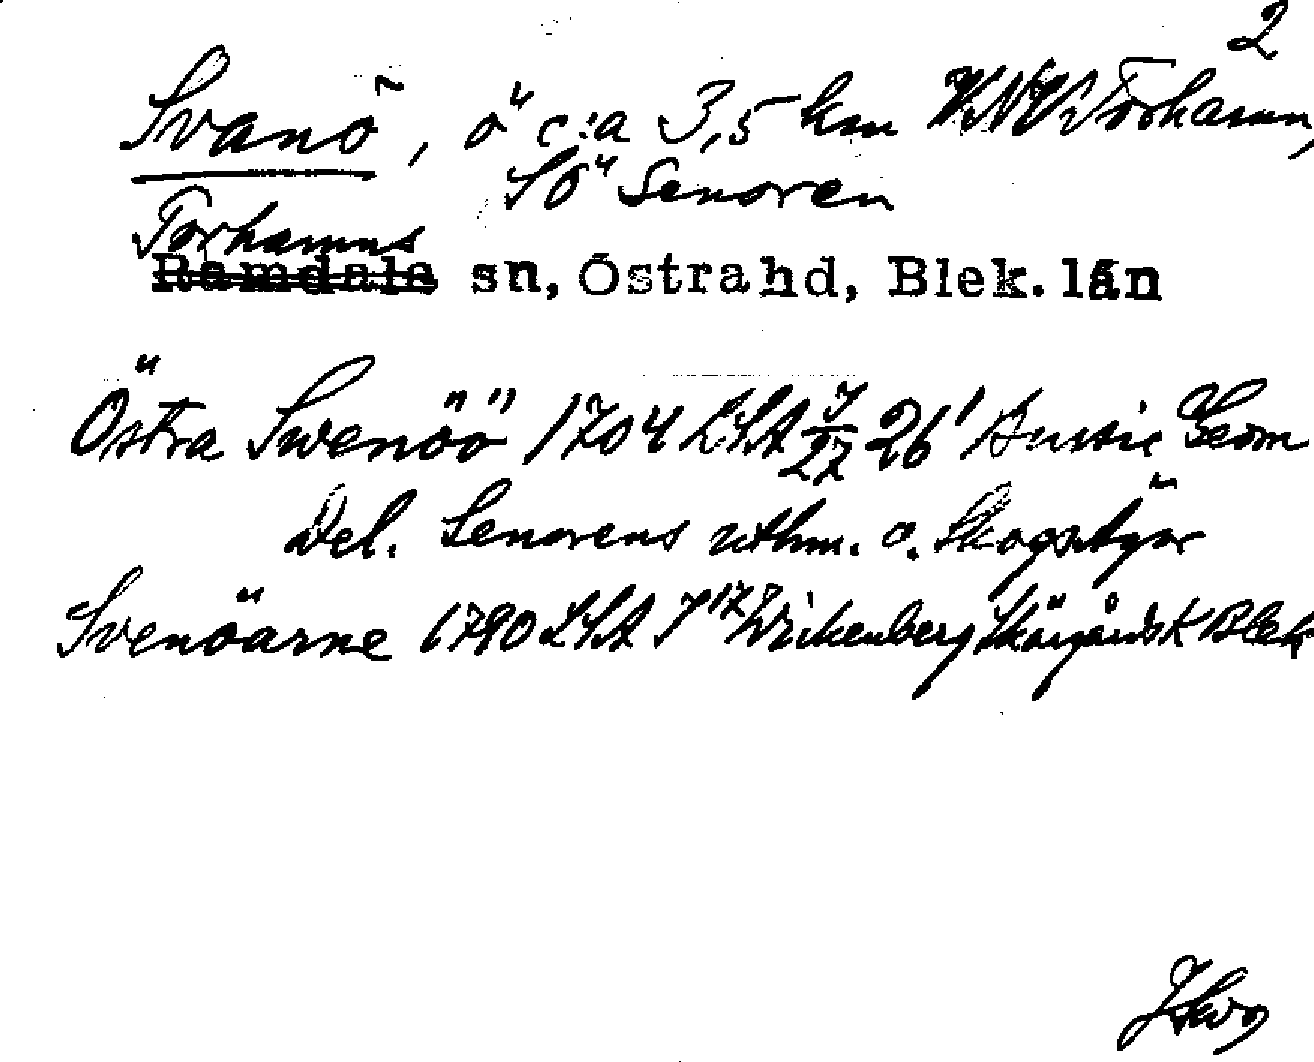 2
Svanö, ö c:a 3,5 km VNV Torhamn,
SÖ Senoren
Torhamns
Ramdala sn, Östra hd, Blek. län
Östra Swenöö 1704 LSA 7/27 26' Geom
Del. Senorens uthm. o. Skogstyar
Svenöarne 1790 LSA J 17/7 Wickenberg Skärgårdsk Blek